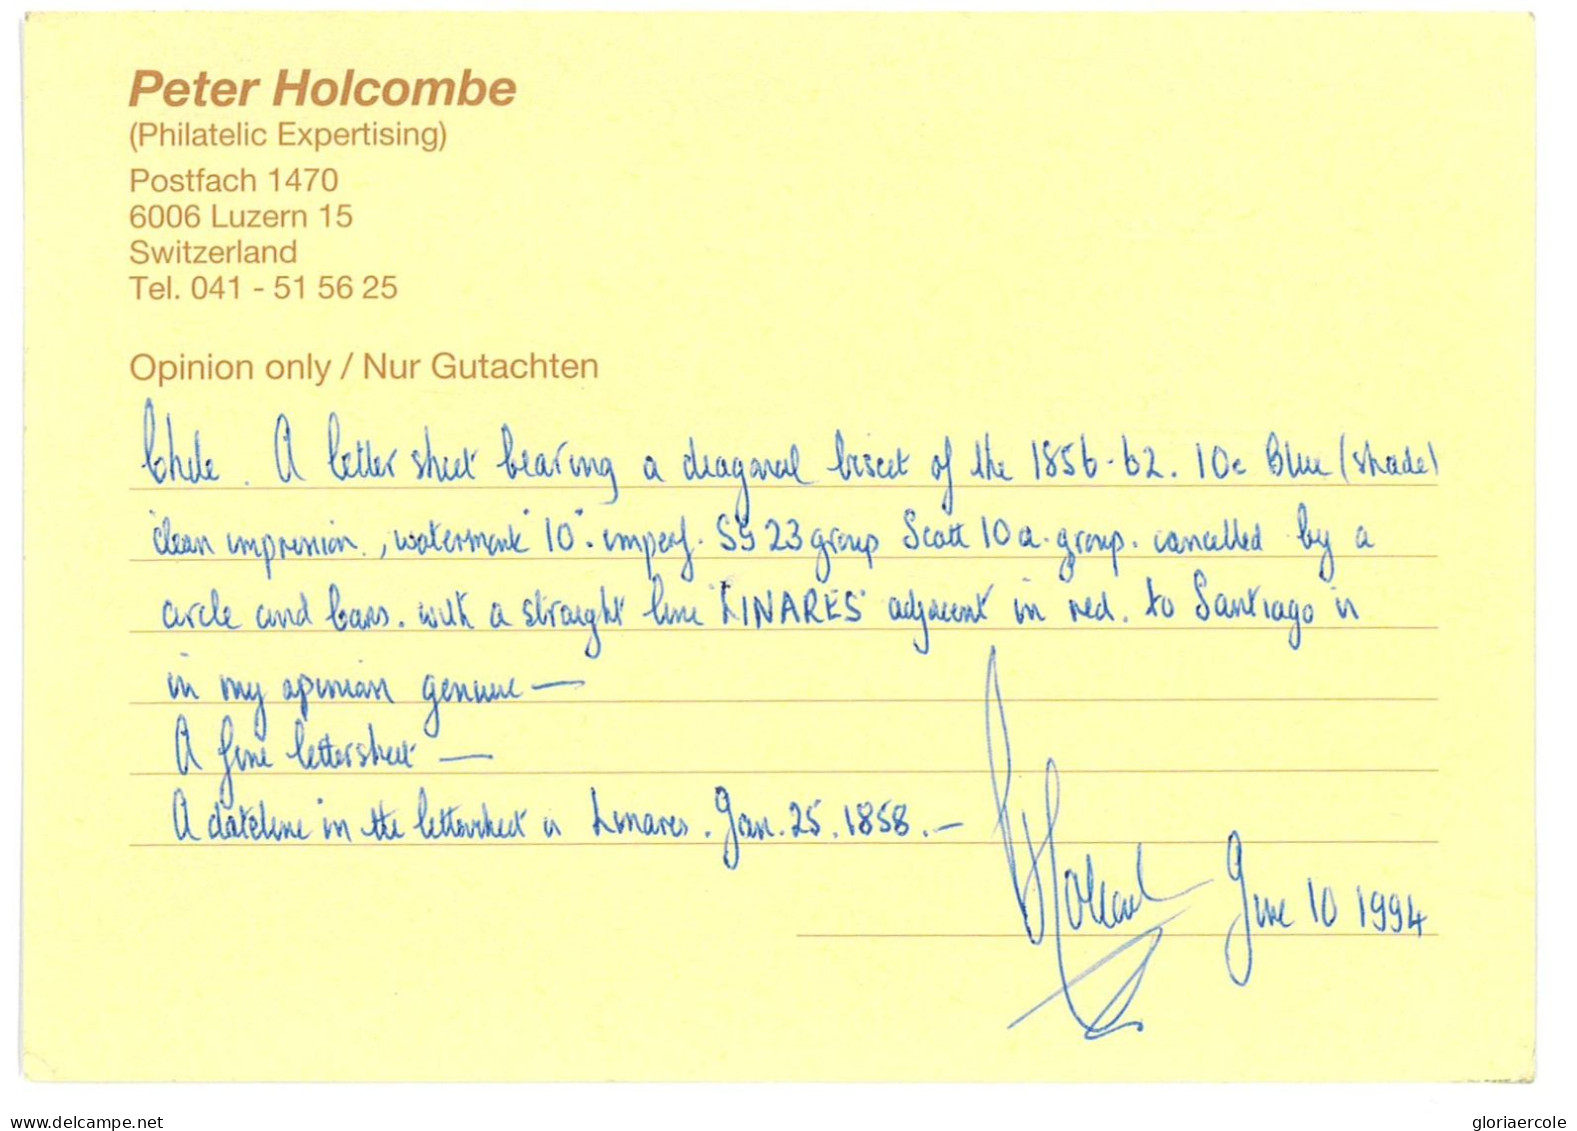 Peter Holcombe
(Philatelic Expertising)
Postfach 1470
6006 Luzern 15
Switzerland
Tel. 041 - 51 56 25
Opinion only / Nur Gutachten
Chile. A letter sheet bearing a diagonal bisect of the 1856-62. 10c Blue (shade)
clean impression, watermark "10". imperf. SG 23 group Scott 10a. group. cancelled by a
circle and bars. with a straight line "LINARES" adjacent in red. to Santiago is
in my opinion genuine —
A fine lettersheet —
A dateline in the lettersheet is Linares. Jan. 25. 1858. —
PHolcombe June 10 1994
www.delcampe.net
gloriaercole